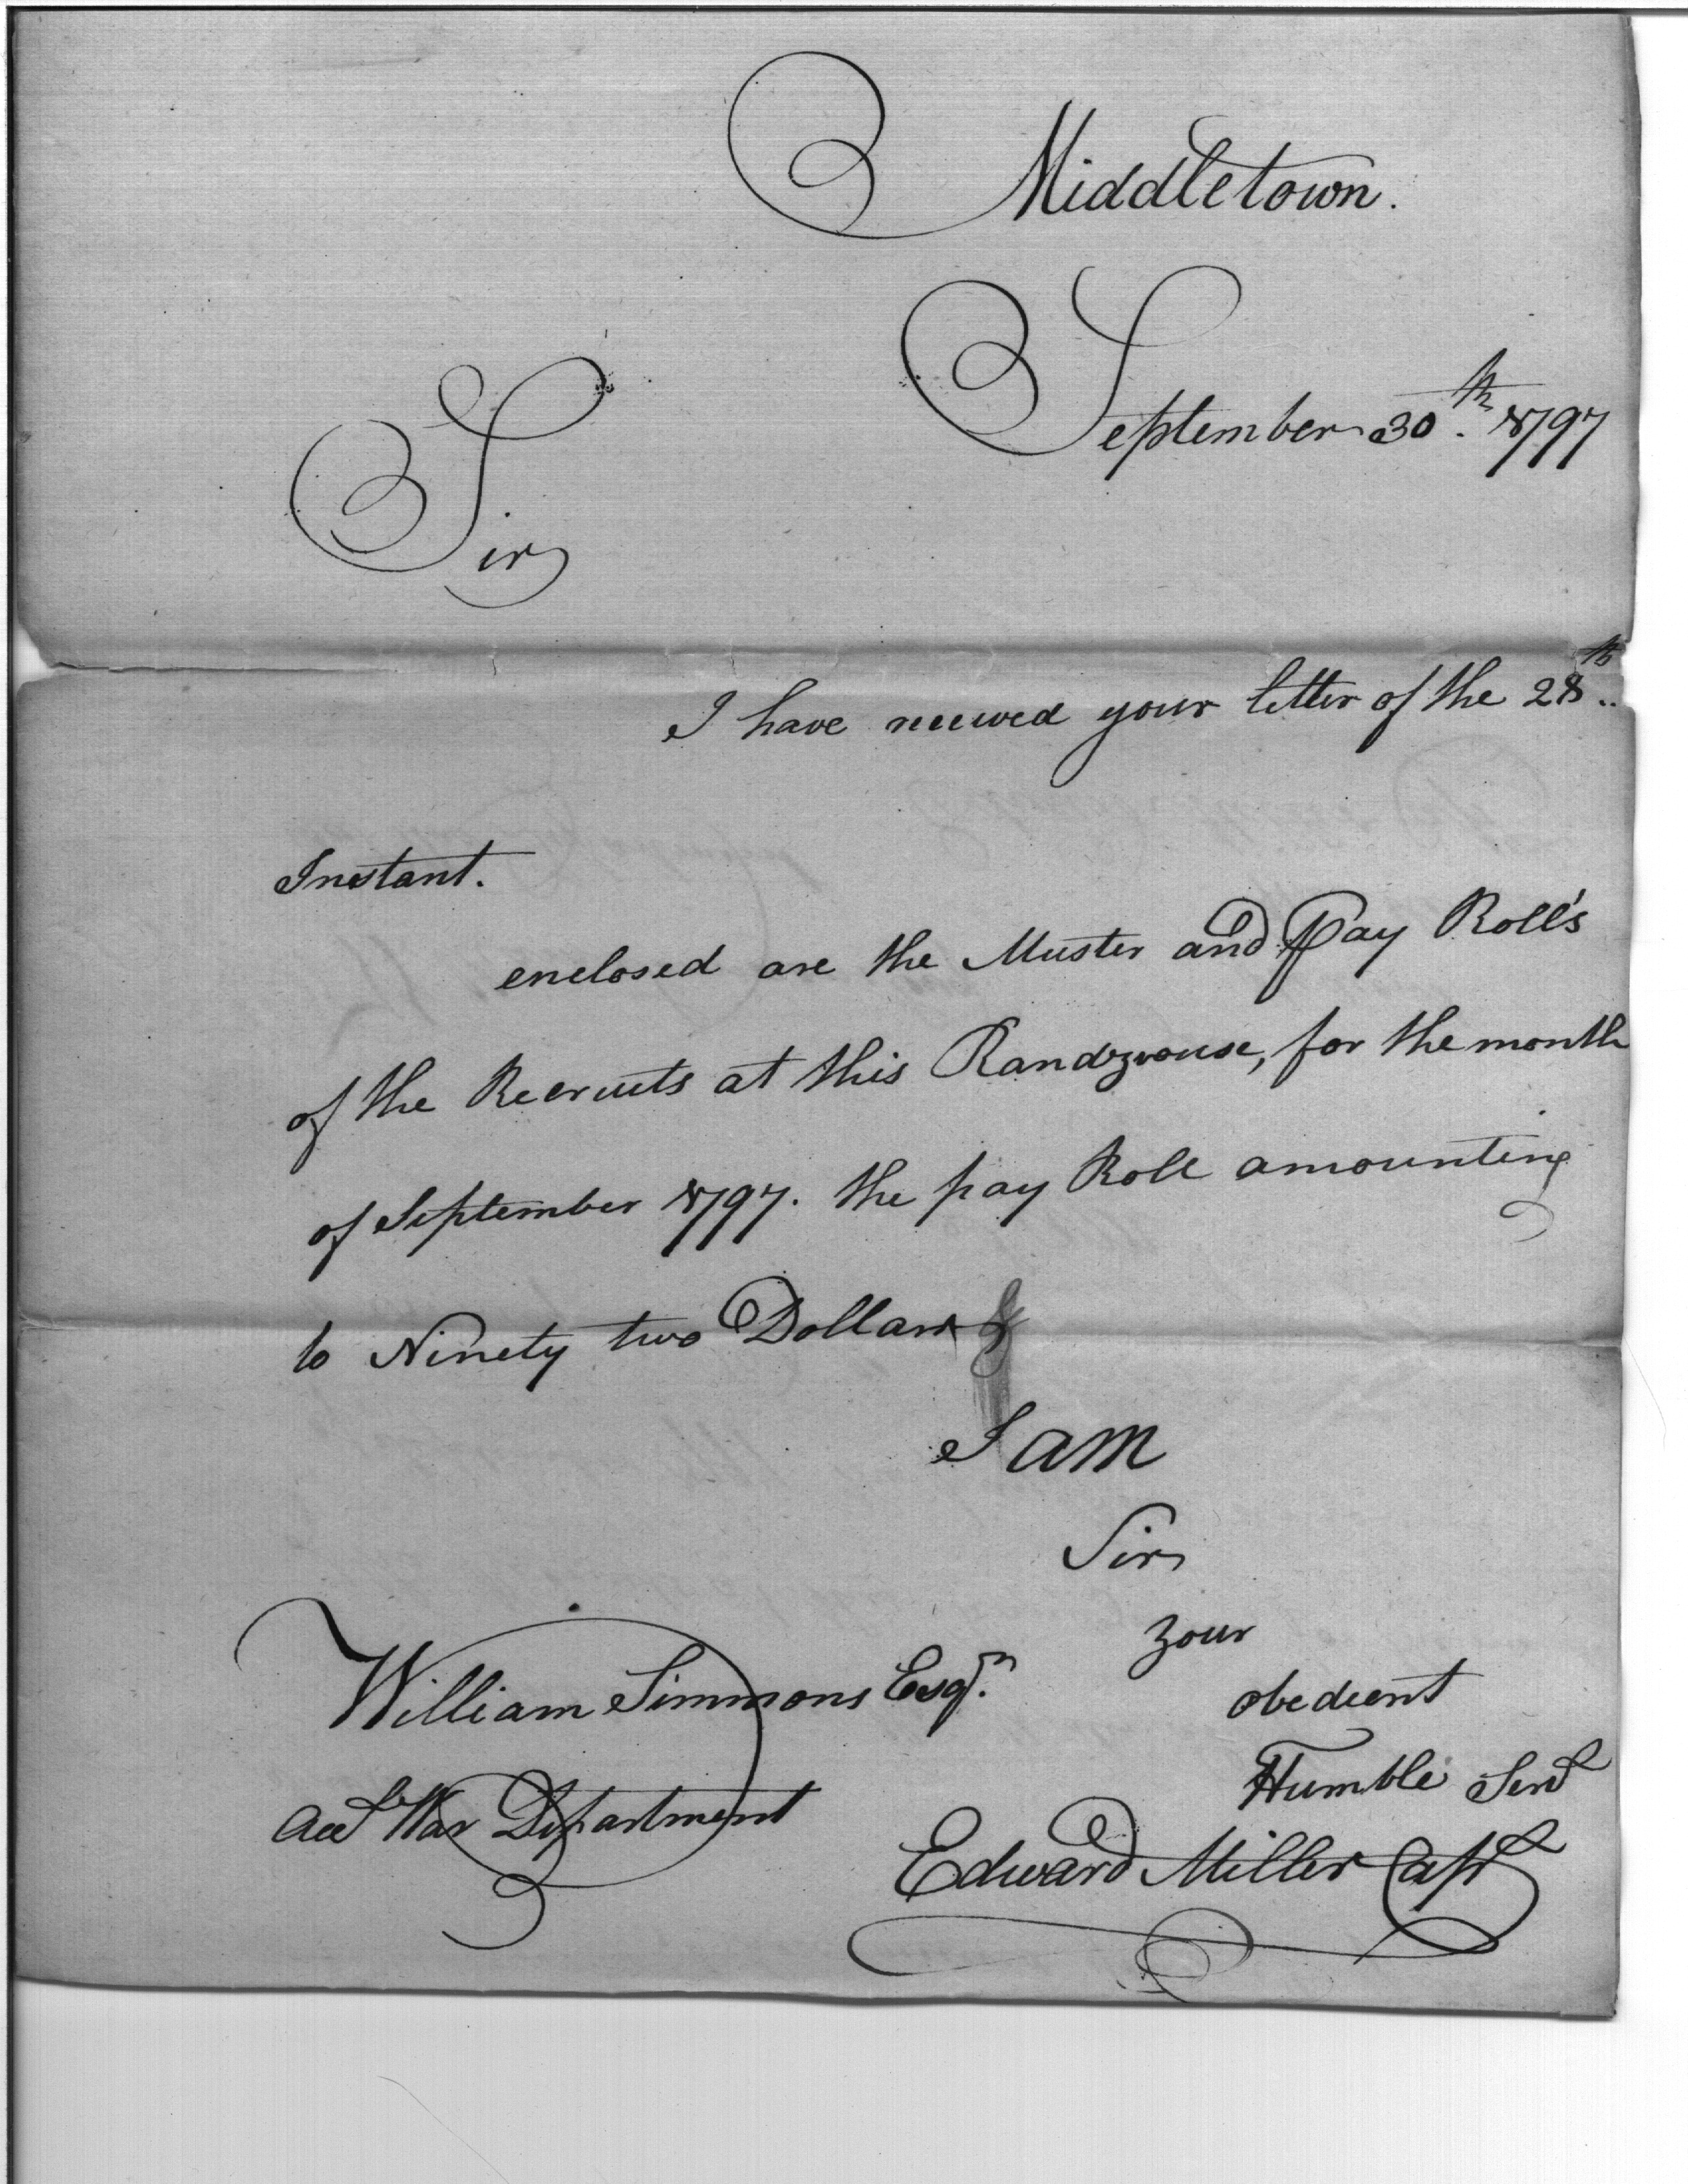 Middletown.
September 30th. 1797
Sir
I have received your letter of the 28th..
Instant.
enclosed are the Muster and Pay Roll's
of the Recruits at this Randzvouse, for the month
of September 1797. the pay Roll amounting
to Ninety two Dollars
I am
Sir
your
obedient
Humble Servt
William Simmons Esqr.
Acct War Department
Edward Miller Capt